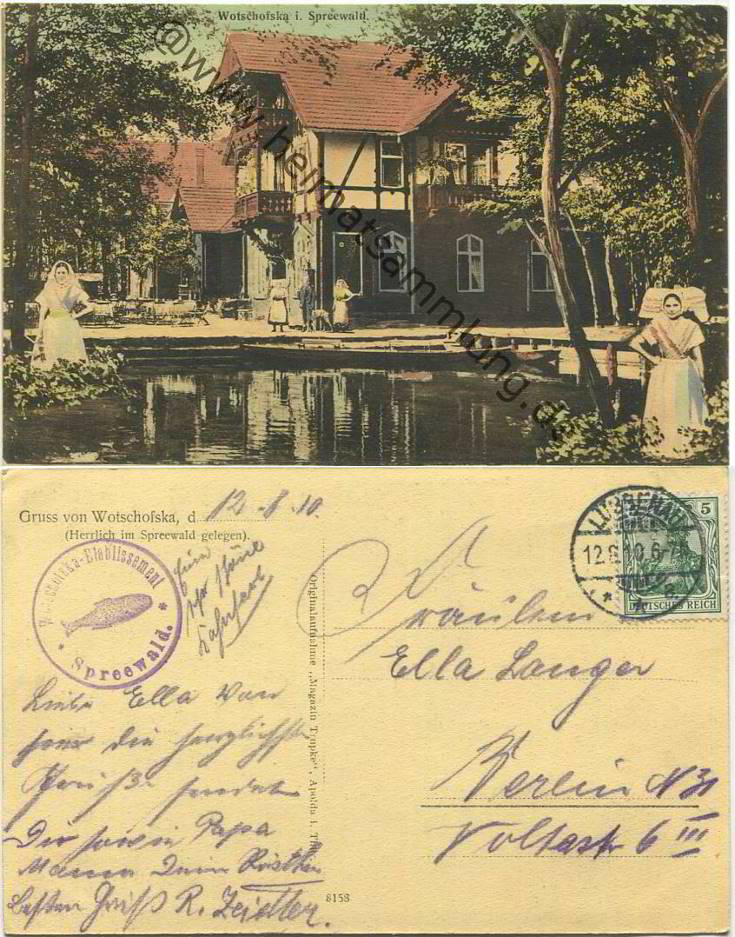 Wotschofska i. Spreewald.
@www.heimatsammlung.de
Gruss von Wotschofska, d 12.8.10.
(Herrlich im Spreewald gelegen).
Wotschofska-Etablissement
Spreewald.
Eine
sehr schöne
Kahnfahrt
Liebe Ella Von
hier die herzlichsten
Grüße sendet
Dir sowie Papa
Mama Deine
Besten Gruß R. Zeidler.
Originalaufnahme „Magazin Tropke“, Apolda i. Th.
8158
LÜBBENAU
12.8.10.6-7
5
DEUTSCHES REICH
Fräulein
Ella Langer
Berlin N 31
Voltastr 6 III